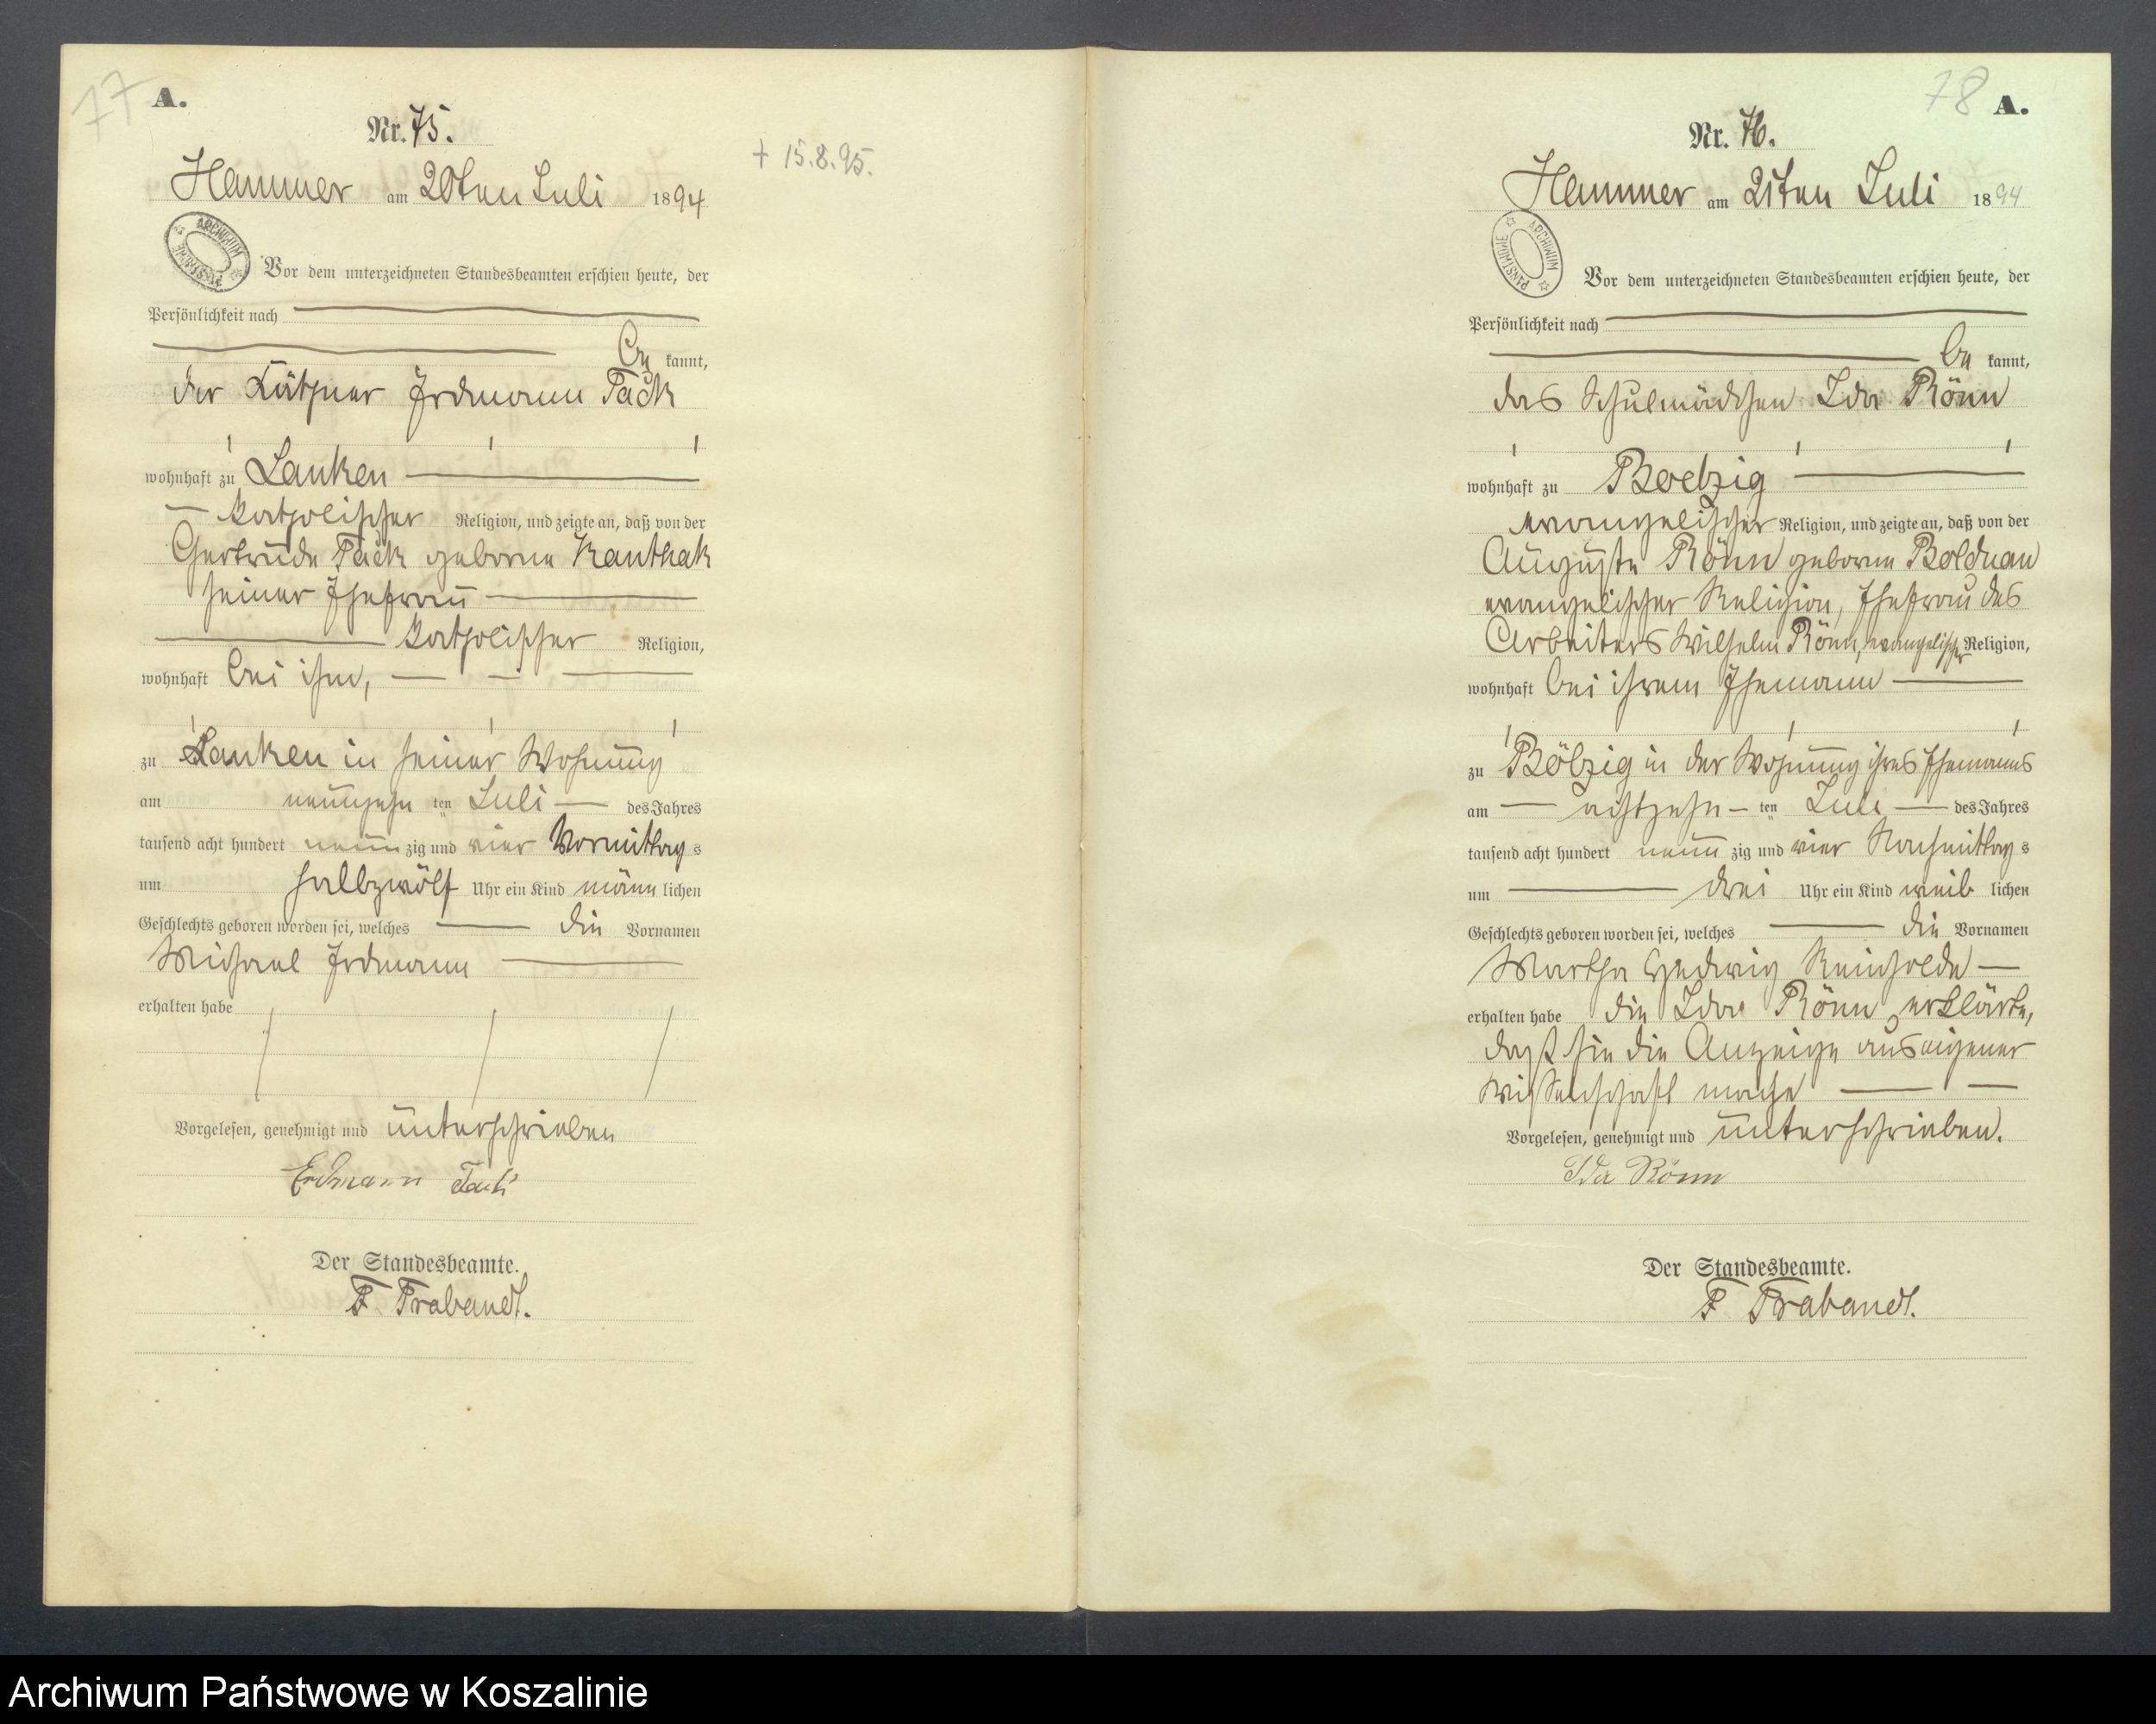 77
A.
Nr. 75.
+ 15.8.95.
Hammer am 20ten Juli 1894
ARCHIWUM PAŃSTWOWE
Vor dem unterzeichneten Standesbeamten erschien heute, der
Persönlichkeit nach
be kannt,
der Käthner Erdmann Tack
wohnhaft zu Lanken
katholischer Religion, und zeigte an, daß von der
Gertrude Tack geborne Kanthak
seiner Ehefrau
katholischer Religion,
wohnhaft bei ihm,
zu Lanken in seiner Wohnung
am neunzehn ten Juli des Jahres
tausend acht hundert neun zig und vier Vormittag s
um halbzwölf Uhr ein Kind männ lichen
Geschlechts geboren worden sei, welches die Vornamen
Michael Erdmann
erhalten habe
Vorgelesen, genehmigt und unterschrieben
Erdmann Tack
Der Standesbeamte.
F Trabandt.
78
A.
Nr. 76.
Hammer am 21ten Juli 1894
ARCHIWUM PAŃSTWOWE
Vor dem unterzeichneten Standesbeamten erschien heute, der
Persönlichkeit nach
be kannt,
das Schulmädchen Ida Rönn
wohnhaft zu Boelzig
evangelischer Religion, und zeigte an, daß von der
Auguste Rönn geborne Bolduan
evangelischer Religion, Ehefrau des
Arbeiters Wilhelm Rönn, evangelischer Religion,
wohnhaft bei ihrem Ehemann
zu Bölzig in der Wohnung ihres Ehemanns
am achtzehn ten Juli des Jahres
tausend acht hundert neun zig und vier Nachmittag s
um drei Uhr ein Kind weib lichen
Geschlechts geboren worden sei, welches die Vornamen
Martha Hedwig Reinholde
erhalten habe die Ida Rönn erklärte,
daß sie die Anzeige aus eigener
Wissenschaft mache
Vorgelesen, genehmigt und unterschrieben.
Ida Rönn
Der Standesbeamte.
F Trabandt.
Archiwum Państwowe w Koszalinie